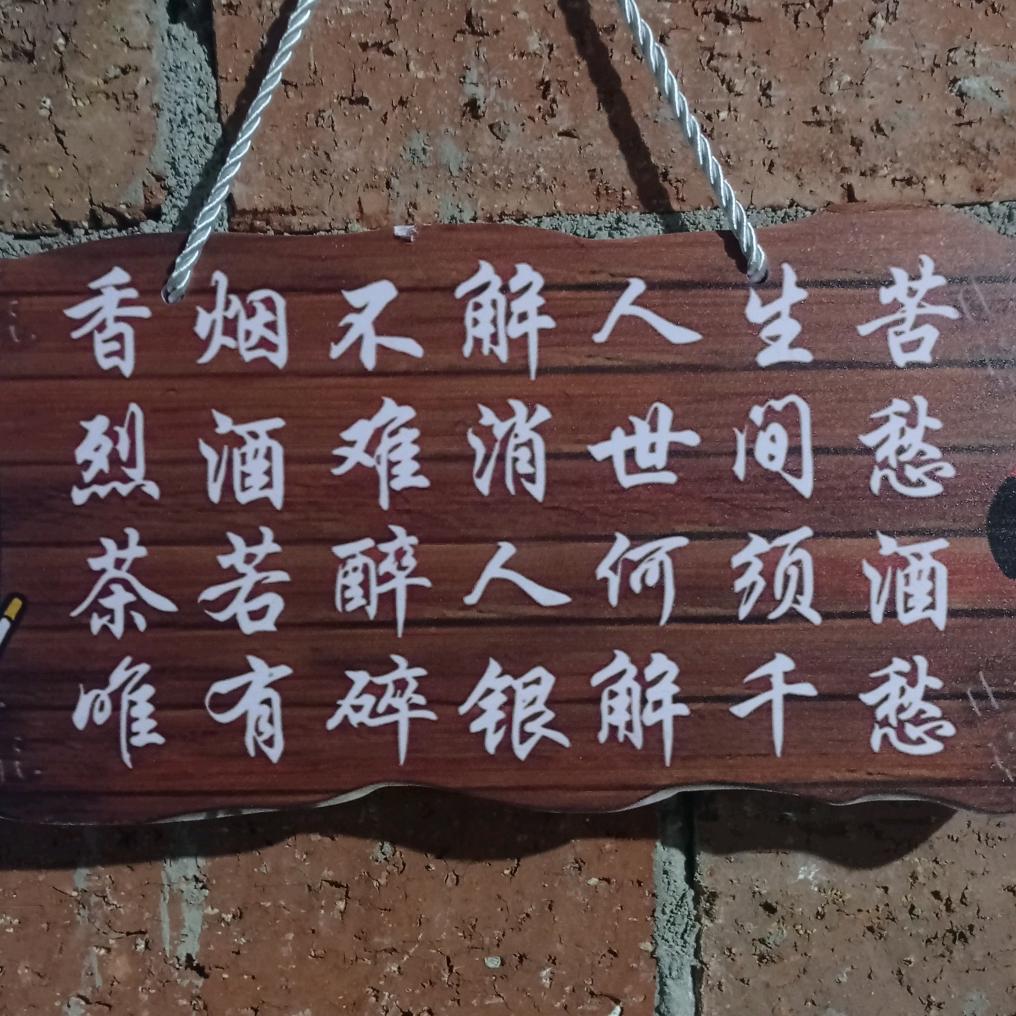 香烟不解人生苦
烈酒难消世间愁
茶若醉人何须酒
唯有碎银解千愁